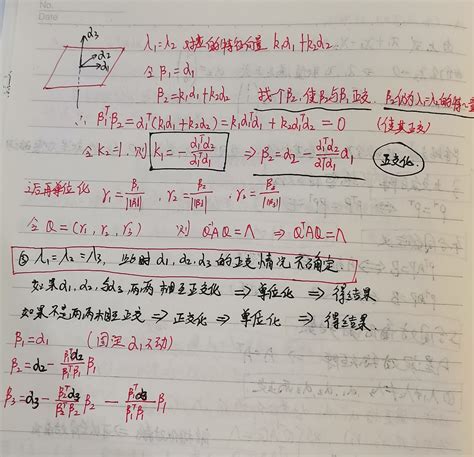 No.
Date
α₃
α₂
α₁
λ₁=λ₂ 对应的特征向量 k₁α₁+k₂α₂
令 β₁=α₁
β₂=k₁α₁+k₂α₂ 找个β₂ 使β₂与β₁正交. β₂仍为λ₁=λ₂的特征向量
∴ β₁ᵀβ₂=α₁ᵀ(k₁α₁+k₂α₂)=k₁α₁ᵀα₁+k₂α₁ᵀα₂=0 (使其正交)
令k₂=1. 则 k₁=-α₁ᵀα₂/α₁ᵀα₁ ⇒ β₂=α₂-α₁ᵀα₂/α₁ᵀα₁ α₁ 正交化.
之后再单位化 γ₁=β₁/||β₁||, γ₂=β₂/||β₂||
令 Q=(γ₁, γ₂, γ₃) 则 QᵀAQ=Λ ⇒ Q⁻¹AQ=Λ
③ λ₁=λ₂=λ₃, 此时 α₁, α₂, α₃ 的正交情况不确定.
如果α₁, α₂, α₃ 两两相互正交化 ⇒ 单位化 ⇒ 得结果
如果不是两两相互正交 ⇒ 正交化 ⇒ 单位化 ⇒ 得结果.
β₁=α₁ (固定α₁不动)
β₂=α₂-β₁ᵀα₂/β₁ᵀβ₁ β₁
β₃=α₃-β₂ᵀα₃/β₂ᵀβ₂ β₂-β₁ᵀα₃/β₁ᵀβ₁ β₁